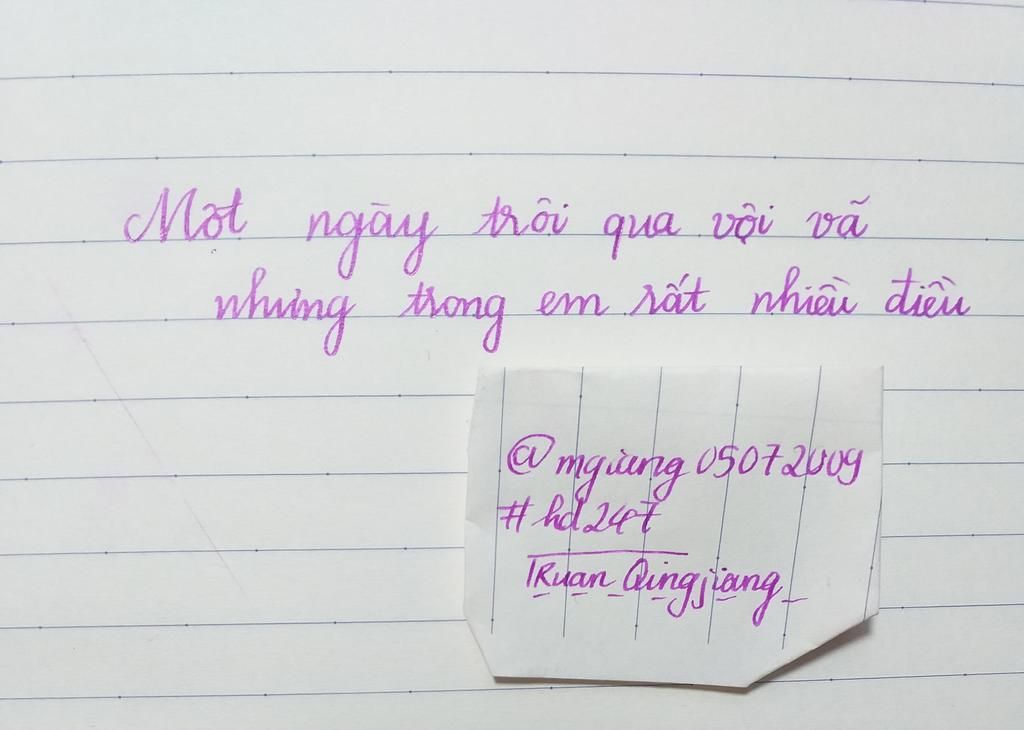 Một ngày trôi qua vội vã
nhưng trong em rất nhiều điều
@mgiang05072009
#hd247
Ruan_Qingjiang_